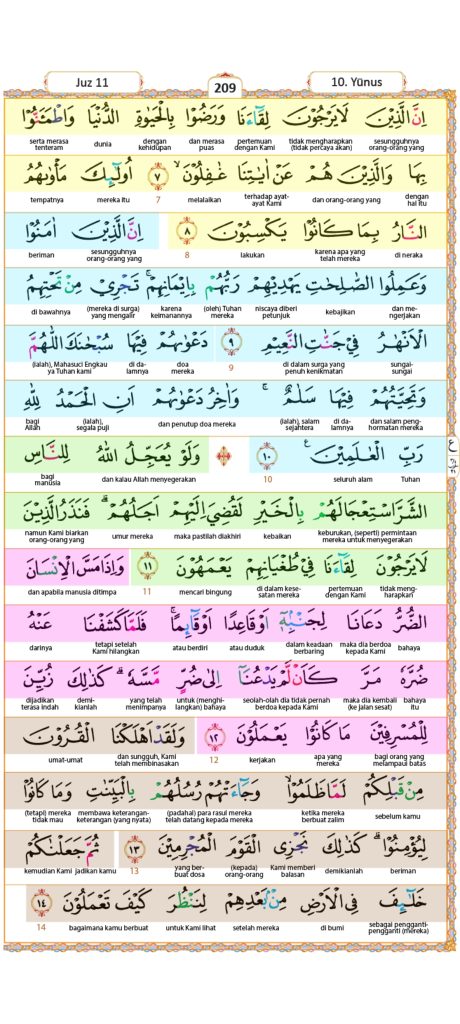 Juz 11
209
10. Yūnus
اِنَّ الَّذِيْنَ لَا يَرْجُوْنَ لِقَاۤءَنَا وَرَضُوْا بِالْحَيٰوةِ الدُّنْيَا وَاطْمَـَٔنُّوْا
sesungguhnya orang-orang yang tidak mengharapkan (tidak percaya akan) pertemuan dengan Kami dan merasa puas dengan kehidupan dunia serta merasa tenteram
بِهَا وَالَّذِيْنَ هُمْ عَنْ اٰيٰتِنَا غٰفِلُوْنَۙ ٧ اُولٰۤىِٕكَ مَأْوٰىهُمُ
dengan hal itu dan orang-orang yang terhadap ayat-ayat Kami melalaikan 7 mereka itu tempatnya
النَّارُ بِمَا كَانُوْا يَكْسِبُوْنَ ٨ اِنَّ الَّذِيْنَ اٰمَنُوْا
di neraka karena apa yang telah mereka lakukan 8 sesungguhnya orang-orang yang beriman
وَعَمِلُوا الصّٰلِحٰتِ يَهْدِيْهِمْ رَبُّهُمْ بِاِيْمَانِهِمْۚ تَجْرِيْ مِنْ تَحْتِهِمُ
dan mengerjakan kebajikan niscaya diberi petunjuk (oleh) Tuhan mereka karena keimanannya (mereka di surga) yang mengalir di bawahnya
الْاَنْهٰرُ فِيْ جَنّٰتِ النَّعِيْمِ ٩ دَعْوٰىهُمْ فِيْهَا سُبْحٰنَكَ اللّٰهُمَّ
sungai-sungai di dalam surga yang penuh kenikmatan 9 doa mereka di dalamnya (ialah), Mahasuci Engkau ya Tuhan kami
وَتَحِيَّتُهُمْ فِيْهَا سَلٰمٌۚ وَاٰخِرُ دَعْوٰىهُمْ اَنِ الْحَمْدُ لِلّٰهِ
dan salam penghormatan mereka di dalamnya (ialah), salam sejahtera dan penutup doa mereka (ialah), segala puji bagi Allah
رَبِّ الْعٰلَمِيْنَ ࣖ ١٠ ۞ وَلَوْ يُعَجِّلُ اللّٰهُ لِلنَّاسِ
Tuhan seluruh alam 10 dan kalau Allah menyegerakan bagi manusia
الشَّرَّ اسْتِعْجَالَهُمْ بِالْخَيْرِ لَقُضِيَ اِلَيْهِمْ اَجَلُهُمْۗ فَنَذَرُ الَّذِيْنَ
keburukan, (seperti) permintaan mereka untuk menyegerakan kebaikan maka pastilah diakhiri umur mereka namun Kami biarkan orang-orang yang
لَا يَرْجُوْنَ لِقَاۤءَنَا فِيْ طُغْيَانِهِمْ يَعْمَهُوْنَ ١١ وَاِذَا مَسَّ الْاِنْسَانَ
tidak mengharapkan pertemuan dengan Kami di dalam kesesatan mereka mencari bingung 11 dan apabila manusia ditimpa
الضُّرُّ دَعَانَا لِجَنْۢبِهٖٓ اَوْ قَاعِدًا اَوْ قَاۤىِٕمًاۚ فَلَمَّا كَشَفْنَا عَنْهُ
bahaya maka dia berdoa kepada Kami dalam keadaan berbaring atau duduk atau berdiri tetapi setelah Kami hilangkan darinya
ضُرَّهٗ مَرَّ كَاَنْ لَّمْ يَدْعُنَآ اِلٰى ضُرٍّ مَّسَّهٗۗ كَذٰلِكَ زُيِّنَ
bahaya itu maka dia kembali (ke jalan sesat) seolah-olah dia tidak pernah berdoa kepada Kami untuk (menghilangkan) bahaya yang telah menimpanya demikianlah dijadikan terasa indah
لِلْمُسْرِفِيْنَ مَا كَانُوْا يَعْمَلُوْنَ ١٢ وَلَقَدْ اَهْلَكْنَا الْقُرُوْنَ
bagi orang yang melampaui batas apa yang mereka kerjakan 12 dan sungguh, Kami telah membinasakan umat-umat
مِنْ قَبْلِكُمْ لَمَّا ظَلَمُوْاۙ وَجَاۤءَتْهُمْ رُسُلُهُمْ بِالْبَيِّنٰتِ وَمَا كَانُوْا
sebelum kamu ketika mereka berbuat zalim (padahal) para rasul mereka telah datang kepada mereka membawa keterangan-keterangan (yang nyata) (tetapi) mereka tidak mau
لِيُؤْمِنُوْاۗ كَذٰلِكَ نَجْزِى الْقَوْمَ الْمُجْرِمِيْنَ ١٣ ثُمَّ جَعَلْنٰكُمْ
beriman demikianlah Kami memberi balasan (kepada) orang-orang yang berbuat dosa 13 kemudian Kami jadikan kamu
خَلٰۤىِٕفَ فِى الْاَرْضِ مِنْۢ بَعْدِهِمْ لِنَنْظُرَ كَيْفَ تَعْمَلُوْنَ ١٤
sebagai pengganti-pengganti (mereka) di bumi setelah mereka untuk Kami lihat bagaimana kamu berbuat 14